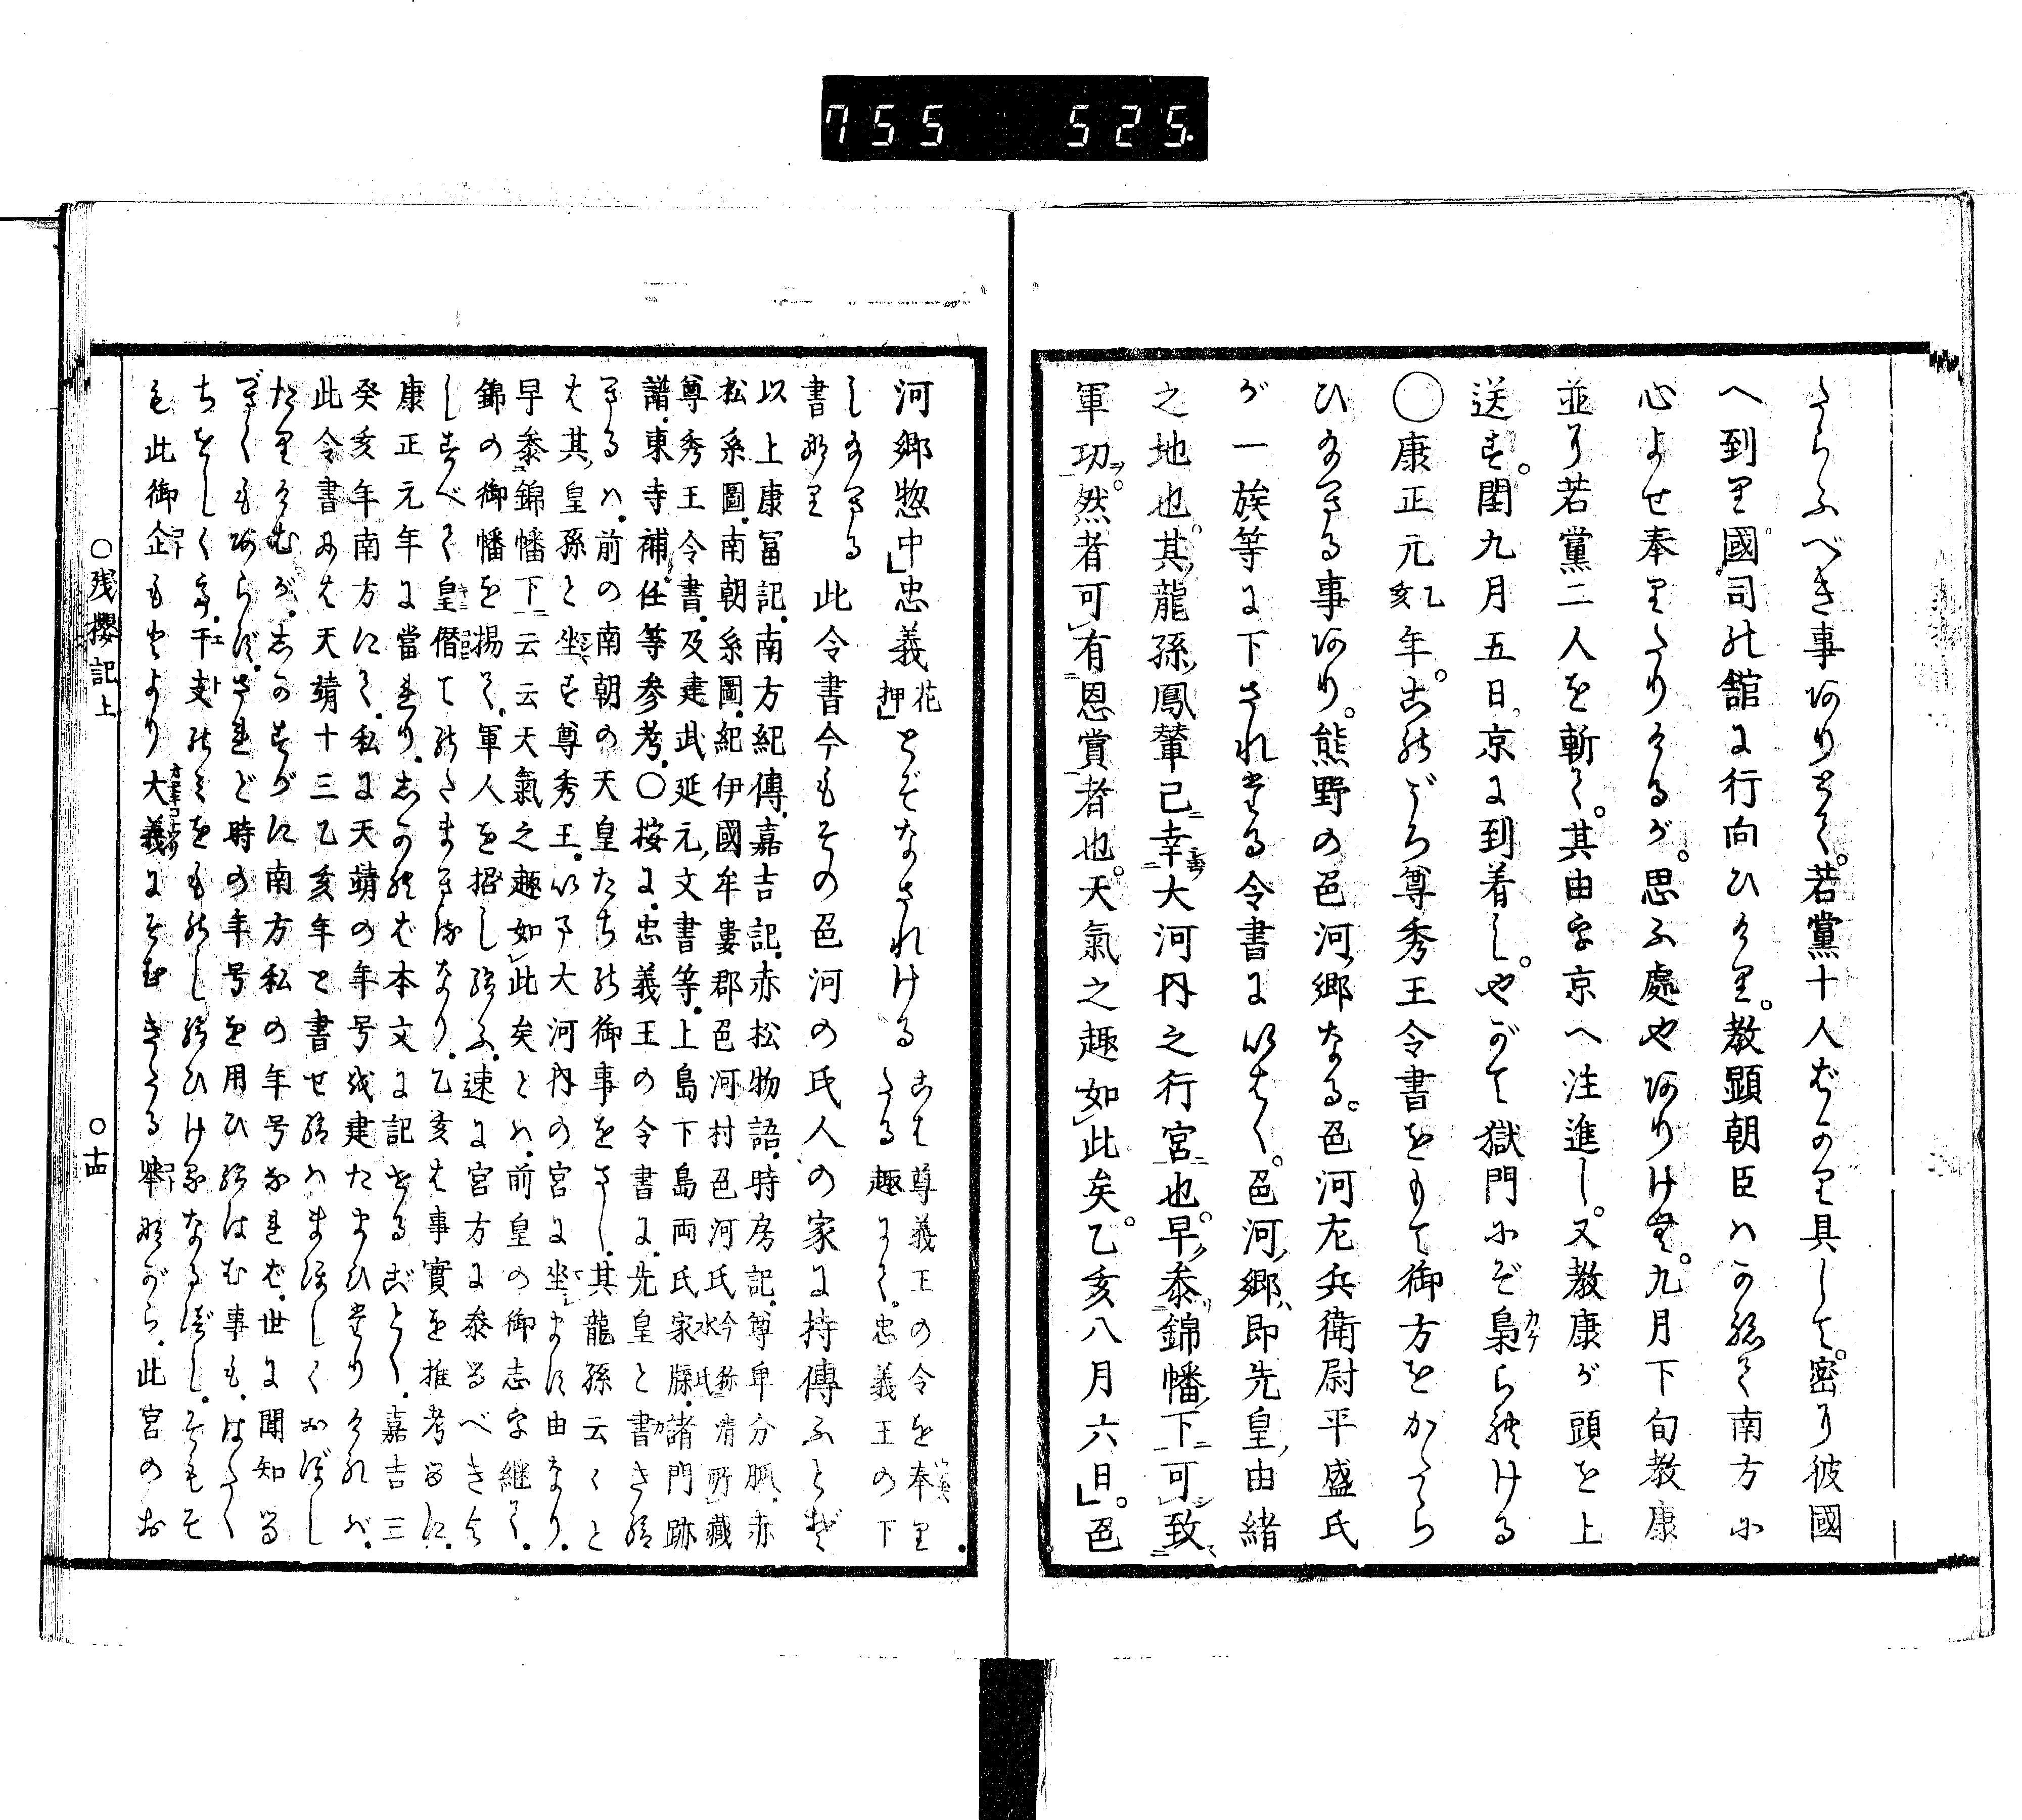 755 525.
さらふべき事ありとて。若黨十人ばかり具して。密に彼國
へ到り國司の舘に行向ひけり。教顕朝臣ハかねて南方に
心よせ奉りたりけるが。思ふ處やありけむ。九月下旬教康
並に若黨二人を斬て。其由を京へ注進し。又教康が頭を上
送す。閏九月五日。京に到着し。やがて獄門にぞ梟られける
◯康正元乙亥年。このごろ尊秀王令書をもて御方をかたら
ひ給へる事あり。熊野の色河郷なる。色河左兵衛尉平盛氏
が一族等に下されたる令書にいはく。色河郷即先皇由緒
之地也。其龍孫鳳輦已幸大河内之行宮也。早泰錦幡下可致
軍功。然者可有恩賞者也。天氣之趣如此矣。乙亥八月六日。色
河郷惣中忠義花押とぞなされける こは尊義王の令を奉り
たる趣にて。忠義王の下
し給へる
書なり 此令書今もその色河の氏人の家に持傳ふとぞ
以上康冨記。南方紀傳。嘉吉記。赤松物語。時房記。尊卑分脈。赤
松系圖。南朝系圖。紀伊國牟婁郡色河村色河氏今称清水氏所藏
尊秀王令書。及建武延元文書等。上島下島両氏家牒。諸門跡
譜。東寺補任等参考。〇按に。忠義王の令書に。先皇と書き給
へるハ。前の南朝の天皇たちの御事をさし。其龍孫云々と
は其皇孫と坐す尊秀王。以下大河内の宮に坐ます由なり。
早泰錦幡下云云天氣之趣如此矣とハ。前皇の御志を継て。
錦の御幡を揚て。軍人を招し給ふ。速に宮方に泰るべき令
しすべて皇僭てのたまへるなり。乙亥は事實を推考るに。
康正元年に當れり。かのれば本文に記せるごとく。嘉吉三
癸亥年南方にて。私に天靖の年号を建たまひたりければ。
此令書には天靖十三乙亥年と書せ給ハまほしくおぼし
たりけむが。かのすがに南方私の年号なれば。世に聞知る
べくもあらず。されど時の年号を用ひ給はむ事も。はたく
ちをしくて。干支のミをものし給ひけるなるべし。そもそ
も此御企ももとより大義にそむきたる擧ながら。此宮のお
〇残櫻記上 〇十四